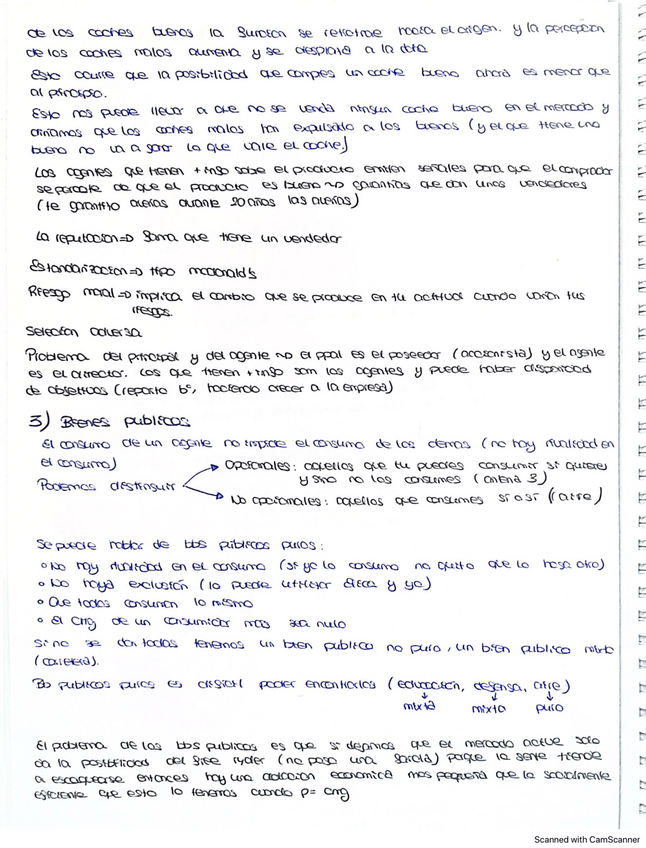 de los coches buenos la función se retrotrae hacia el origen. y la percepción
de los coches malos aumenta y se desplaza a la dcta
Esto ocurre que la posibilidad que compres un coche bueno ahora es menor que
al principio.
Esto nos puede llevar a que no se venda ningún coche bueno en el mercado y
diríamos que los coches malos han expulsado a los buenos (y el que tiene uno
bueno no va a ganar lo que vale el coche.)
Los agentes que tienen + info sobre el producto emiten señales para que el comprador
se percate de que el producto es bueno → garantías que dan unos vendedores
(te garantizo averías durante 20 años las averías)
La reputación => fama que tiene un vendedor
Estandarización => tipo mcdonald's
Riesgo moral => implica el cambio que se produce en tu actitud cuando varían tus
riesgos.
Selección adversa
Problema del principal y del agente → el ppal es el poseedor (accionista) y el agente
es el director. Los que tienen + info son los agentes y puede haber disparidad
de objetivos (reparto bº, haciendo crecer a la empresa)
3) Bienes publicos
El consumo de un agente no impide el consumo de los demas (no hay rivalidad en
el consumo)
Opcionales: aquellos que tu puedes consumir si quieres
y sino no los consumes (antena 3)
Podemos distinguir
No opcionales: aquellos que consumes si o si (aire)
Se puede hablar de bbs públicos puros:
• No hay rivalidad en el consumo (si yo lo consumo no quito que lo haga otro)
• No haya exclusión (lo puede utilizar y yo)
• Que todos consuman lo mismo
• El Cmg de un consumidor mas sea nulo
Si no se dan todos tenemos un bien publico no puro, un bien publico mixto
(carretera).
Bs publicos puros es difícil poder encontrarlos (educación, defensa, aire)
mixta mixta puro
El problema de los bbs publicos es que si dejamos que el mercado actue solo
da la posibilidad del free ryder (no pago una farola) porque la gente tiende
a escaquearse entonces hay una dotación económica mas pequeña que la socialmente
eficiente que esto lo tenemos cuando p= cmg
Scanned with CamScanner